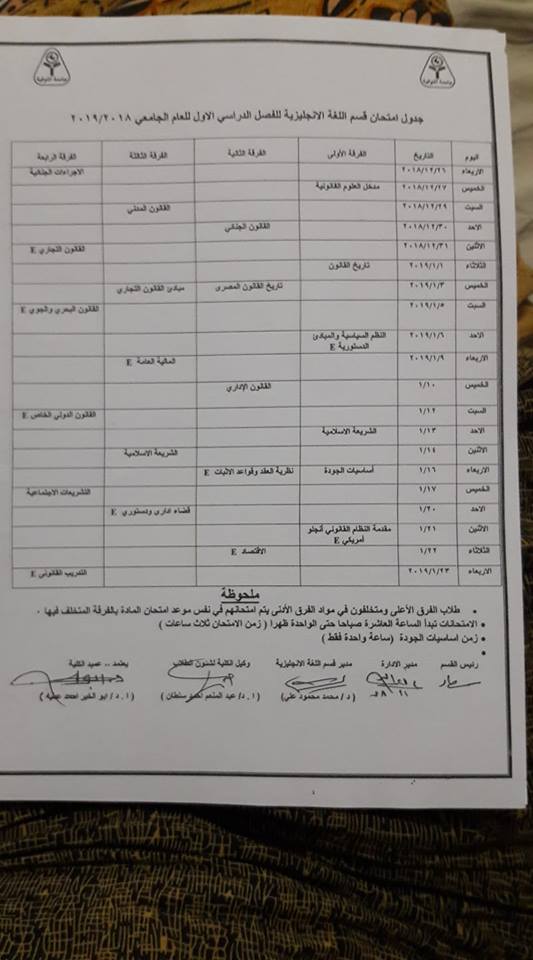 جامعة المنوفية
جامعة المنوفية
جدول امتحان قسم اللغة الانجليزية للفصل الدراسي الاول للعام الجامعي ٢٠١٩/٢٠١٨
اليوم التاريخ الفرقة الأولى الفرقة الثانية الفرقة الثالثة الفرقة الرابعة
الاربعاء ٢٠١٨/١٢/٢٦ الاجراءات الجنائية
الخميس ٢٠١٨/١٢/٢٧ مدخل العلوم القانونية
السبت ٢٠١٨/١٢/٢٩ القانون المدني
الاحد ٢٠١٨/١٢/٣٠ القانون الجنائي
الاثنين ٢٠١٨/١٢/٣١ القانون التجاري E
الثلاثاء ٢٠١٩/١/١ تاريخ القانون
الخميس ٢٠١٩/١/٣ تاريخ القانون المصرى مبادئ القانون التجاري
السبت ٢٠١٩/١/٥ القانون البحري والجوي E
الاحد ٢٠١٩/١/٦ النظم السياسية والمبادئ
الدستورية E
الاربعاء ٢٠١٩/١/٩ المالية العامة E
الخميس ١/١٠ القانون الإداري
السبت ١/١٢ القانون الدولي الخاص E
الاحد ١/١٣ الشريعة الاسلامية
الاثنين ١/١٤ الشريعة الاسلامية
الاربعاء ١/١٦ أساسيات الجودة نظرية العقد وقواعد الاثبات E
الخميس ١/١٧ التشريعات الاجتماعية
الاحد ١/٢٠ قضاء اداري ودستوري E
الاثنين ١/٢١ مقدمة النظام القانوني أنجلو
أمريكي E
الثلاثاء ١/٢٢ الاقتصاد E
الاربعاء ٢٠١٩/١/٢٣ التدريب القانوني E
ملحوظة
• طلاب الفرق الأعلى ومتخلفون في مواد الفرق الأدنى يتم امتحانهم في نفس موعد امتحان المادة بالفرقة المتخلف فيها .
• الامتحانات تبدأ الساعة العاشرة صباحا حتى الواحدة ظهرا ( زمن الامتحان ثلاث ساعات )
• زمن اساسيات الجودة (ساعة واحدة فقط )
رئيس القسم مدير الادارة مدير قسم اللغة الانجليزية وكيل الكلية لشئون الطلاب يعتمد .. عميد الكلية
(د/ محمد محمود علي) (ا.د/ عبد المنعم أحمد سلطان ) (ا.د/ ابو الخير احمد عطية )